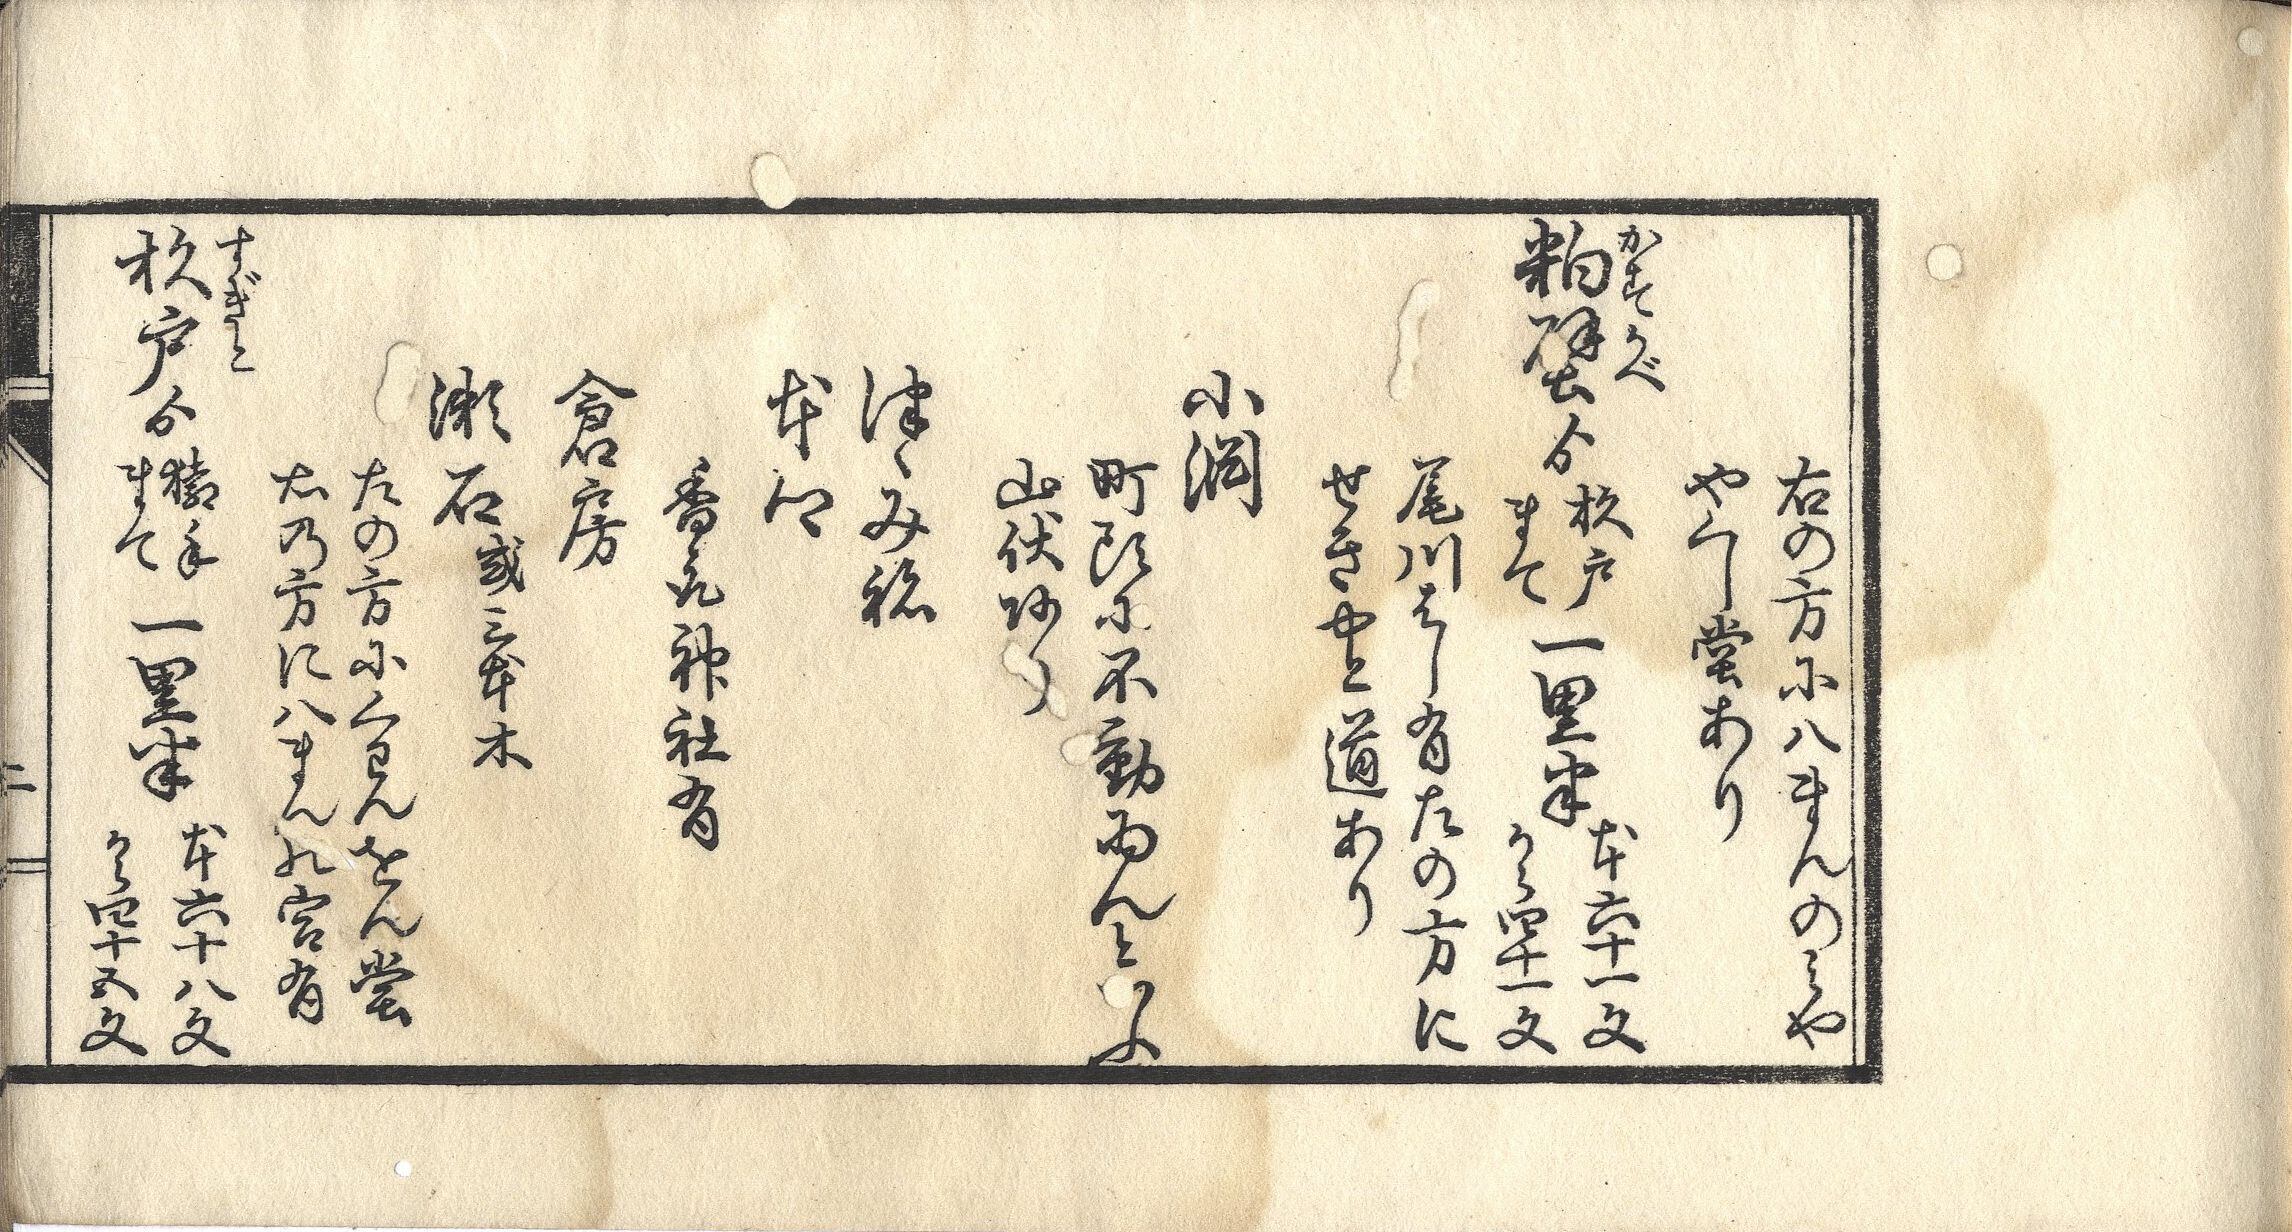 右の方に八まんのみや
やくし堂あり
かすかべ
粕壁ゟ杉戸まて一里半本六十一文から四十一文
尾川はし有左の方に
せきやど道あり
小渕
町頭に不動いんといふ
山伏あり
つゝみ根
本江
香取神社有
倉房
瀬石或三本木
左の方にくわんをん堂
右乃方に八まんの宮有
すぎと
杉戸ゟ幸手まて一里半本六十八文から四十五文
二